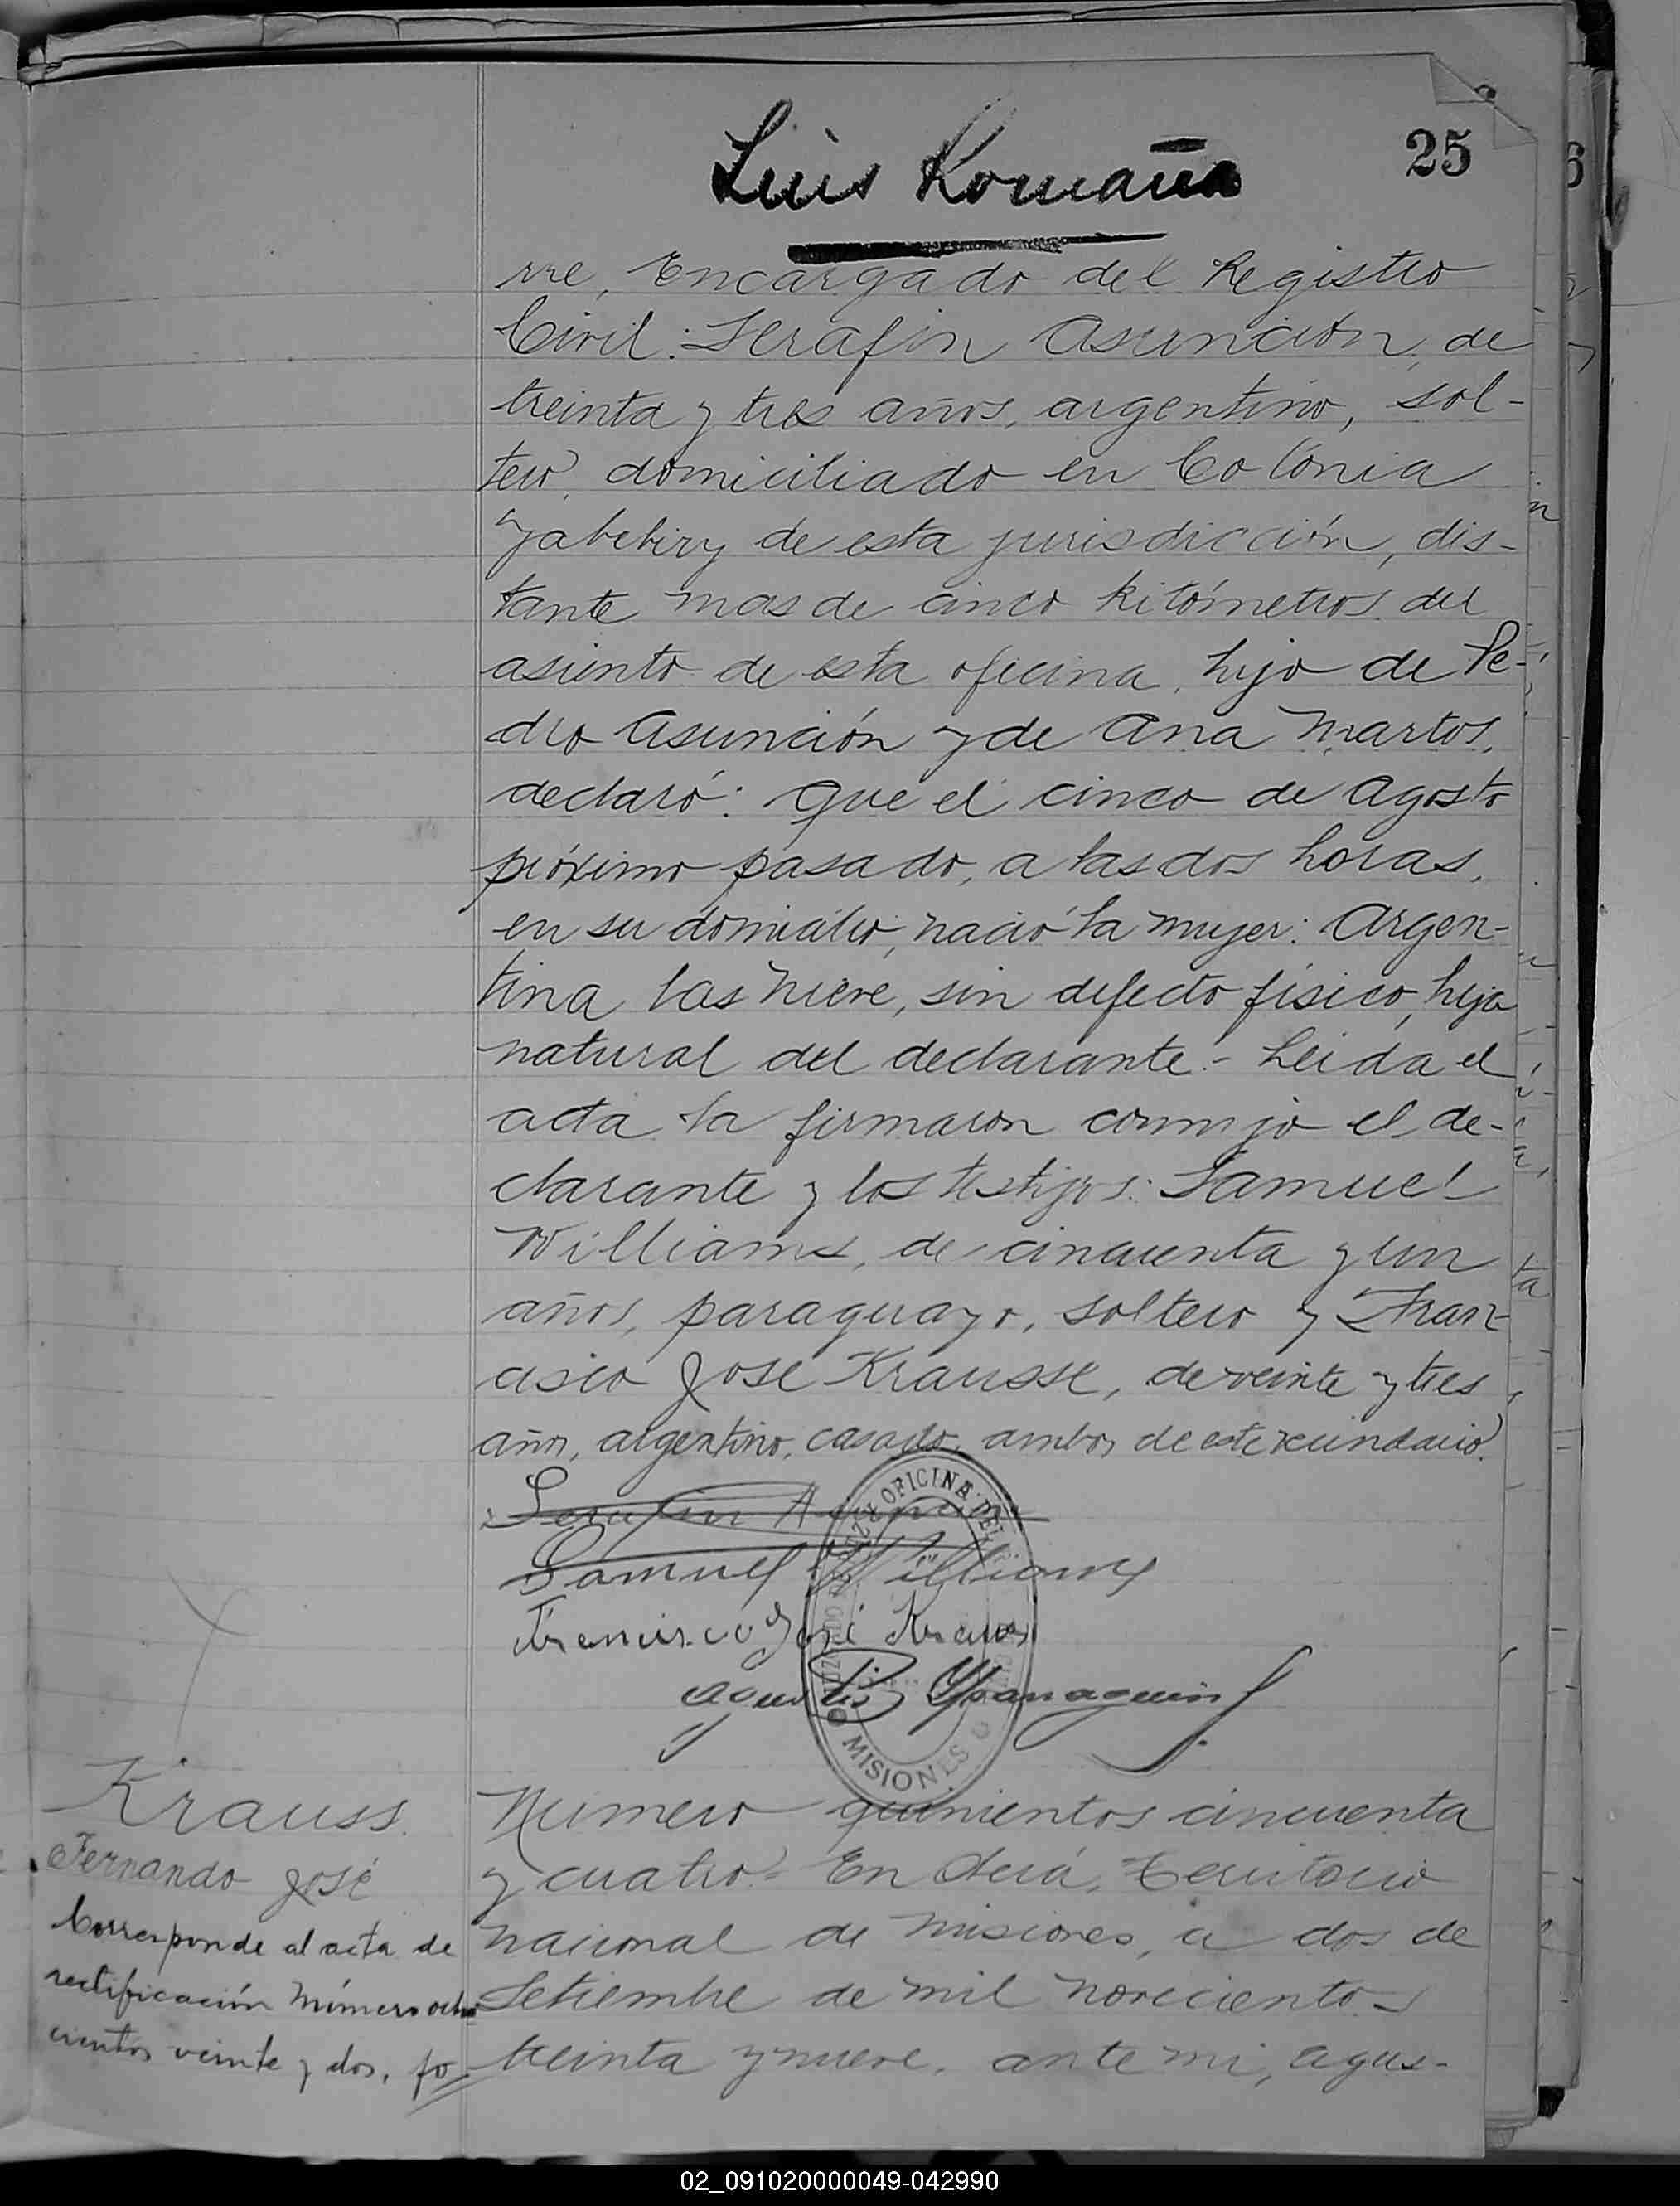 25
Luis Romaña
rre, Encargado del Registro
Civil: Serafin Asunción, de
treinta y tres años, argentino, sol-
tero, domiciliado en Colonia
Yabebiry de esta jurisdicción, dis-
tante mas de cinco kilómetros del
asiento de esta oficina, hijo de Pe-
dro Asunción y de Ana Martos,
declaró: Que el cinco de Agosto
próximo pasado, a las dos horas,
en su domicilio, nació la mujer: Argen-
tina las Nieve, sin defecto fisico, hija
natural del declarante.- Leida el
acta la firmaron conmigo el de-
clarante y los testigos: Samuel
Williams, de cincuenta y un
años, paraguayo, soltero y Fran-
cisco José Krausse, de veinte y tres
años, argentino, casado, ambos de este vecindario.
Serafin Asunción
Samuel Williams
Francisco José Krauss
Agustin
OFICINA DEL
MISIONES
Krauss
Fernando José
Corresponde al acta de
rectificación número ocho
cientos veinte y dos, fo
Número quinientos cincuenta
y cuatro.- En Oberá, Territorio
nacional de Misiones, a dos de
Setiembre de mil novecientos
treinta y nueve, ante mi, Agus-
02_091020000049-042990